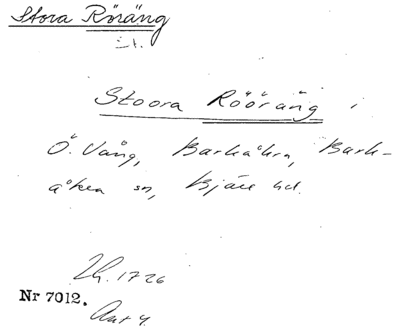 Stora Röräng
St.
Stoora Rööräng i
Ö. Vång, Barkåkra, Bark-
åkra sn, Bjäre hd.
Lh. 1726
Nr 7012.
Akt 4.